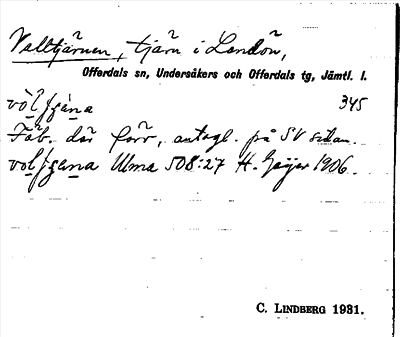 Valltjärnen, tjärn i Landön,
Offerdals sn, Undersåkers och Offerdals tg, Jämtl. l.
345
Fäb. där förr, antagl. på SV sidan.
Ulma 508:27 H. Geijer 1906.
C. LINDBERG 1931.